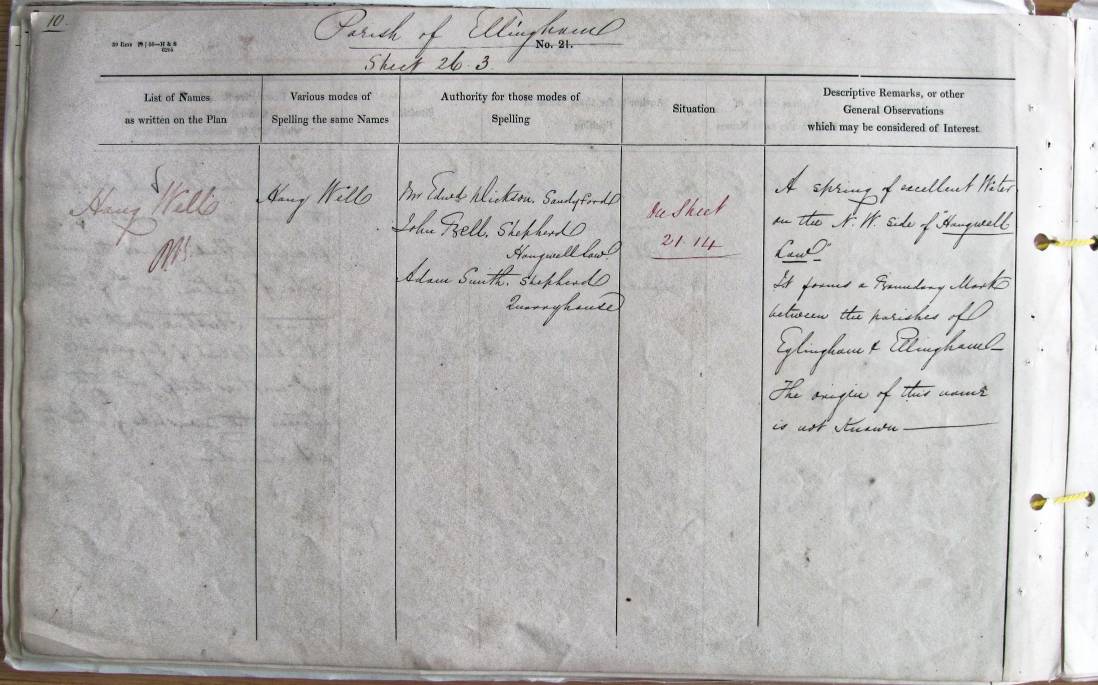 10.
Parish of Ellingham
No. 21.
Sheet 26.3.
List of Names
as written on the Plan
Various modes of
Spelling the same Names
Authority for those modes of
Spelling
Situation
Descriptive Remarks, or other
General Observations
which may be considered of Interest.
Hang Well
Hang Well
Mr Edwd Dickson. Sandyford
John Bell. Shepherd
Hangwell Law
Adam Smith. Shepherd
Quarryhouse
On Sheet
21.14
A spring of excellent Water
on the N.W. side of "Hangwell
Law"
It forms a Boundary Mark
between the parishes of
Eglingham & Ellingham
The origin of this name
is not Known